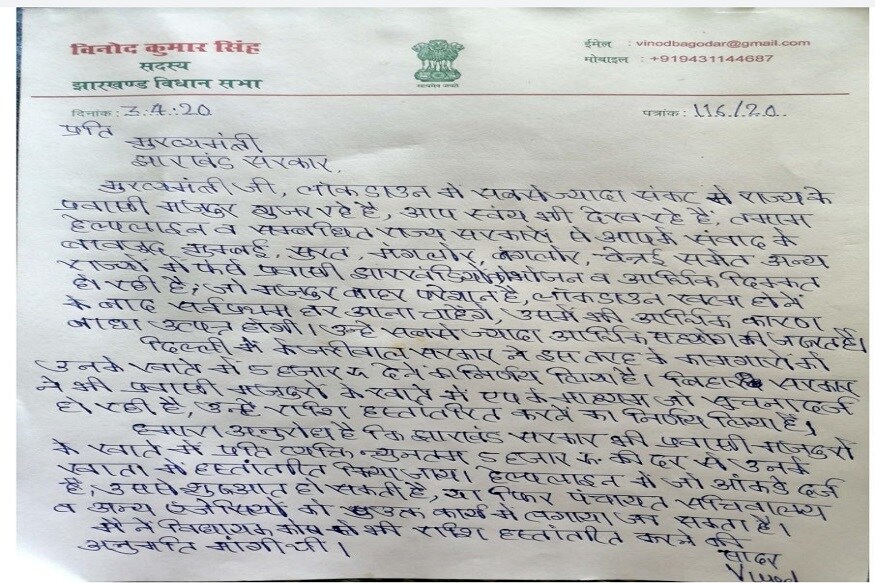 विनोद कुमार सिंह
सदस्य
झारखण्ड विधान सभा
सत्यमेव जयते
ईमेल : vinodbagodar@gmail.com
मोबाइल : +919431144687
दिनांक : 3.4.20
पत्रांक : 116/20
प्रति
मुख्यमंत्री
झारखंड सरकार,
मुख्यमंत्री जी, लॉकडाउन में सबसे ज्यादा संकट से राज्य के
प्रवासी मजदुर गुजर रहे है, आप स्वंय भी देख रहे हैं, तमाम
हेल्पलाईन व सम्बन्धित राज्य सरकारों से आपके संवाद के
बावजुद मुम्बई, सुरत, मंगलोर, बंगलोर, चेन्नई समेत अन्य
राज्यों में फंसे प्रवासी झारखंडियों को भोजन व आर्थिक दिक्कत
हो रही है, जो मजदुर बाहर परेशान है, लॉकडाउन खत्म होने
के बाद सर्वप्रथम घर आना चाहेंगे, उसमें भी आर्थिक कारण
बाधा उत्पन्न होगी। उन्हे सबसे ज्यादा आर्थिक सहयोग की जरूरत है।
दिल्ली में केजरीवाल सरकार ने इस तरह के कामगारों को
उनके खाते में 5 हजार रू देने का निर्णय लिया है। बिहार सरकार
ने भी प्रवासी मजदुरों के खाते में एप के माध्यम जो सुचना दर्ज
हो रही है, उन्हे राशि हस्तांतरित करने का निर्णय लिया है।
हमारा अनुरोध है कि झारखंड सरकार भी प्रवासी मजदुरों
के खाते में प्रति व्यक्ति न्युनतम 5 हजार रू की दर से उनके
खाता में हस्तांतरित किया जाय। हेल्पलाईन में जो आँकड़े दर्ज
हैं, उससे शुरुआत हो सकती है, या फिर पंचायत सचिवालय
व अन्य एजेंसियों को उक्त कार्य में लगाया जा सकता है।
मैं ने विधायक कोष से भी राशि हस्तांतरित करने की
अनुमति मांगी थी।
सादर
Vinod